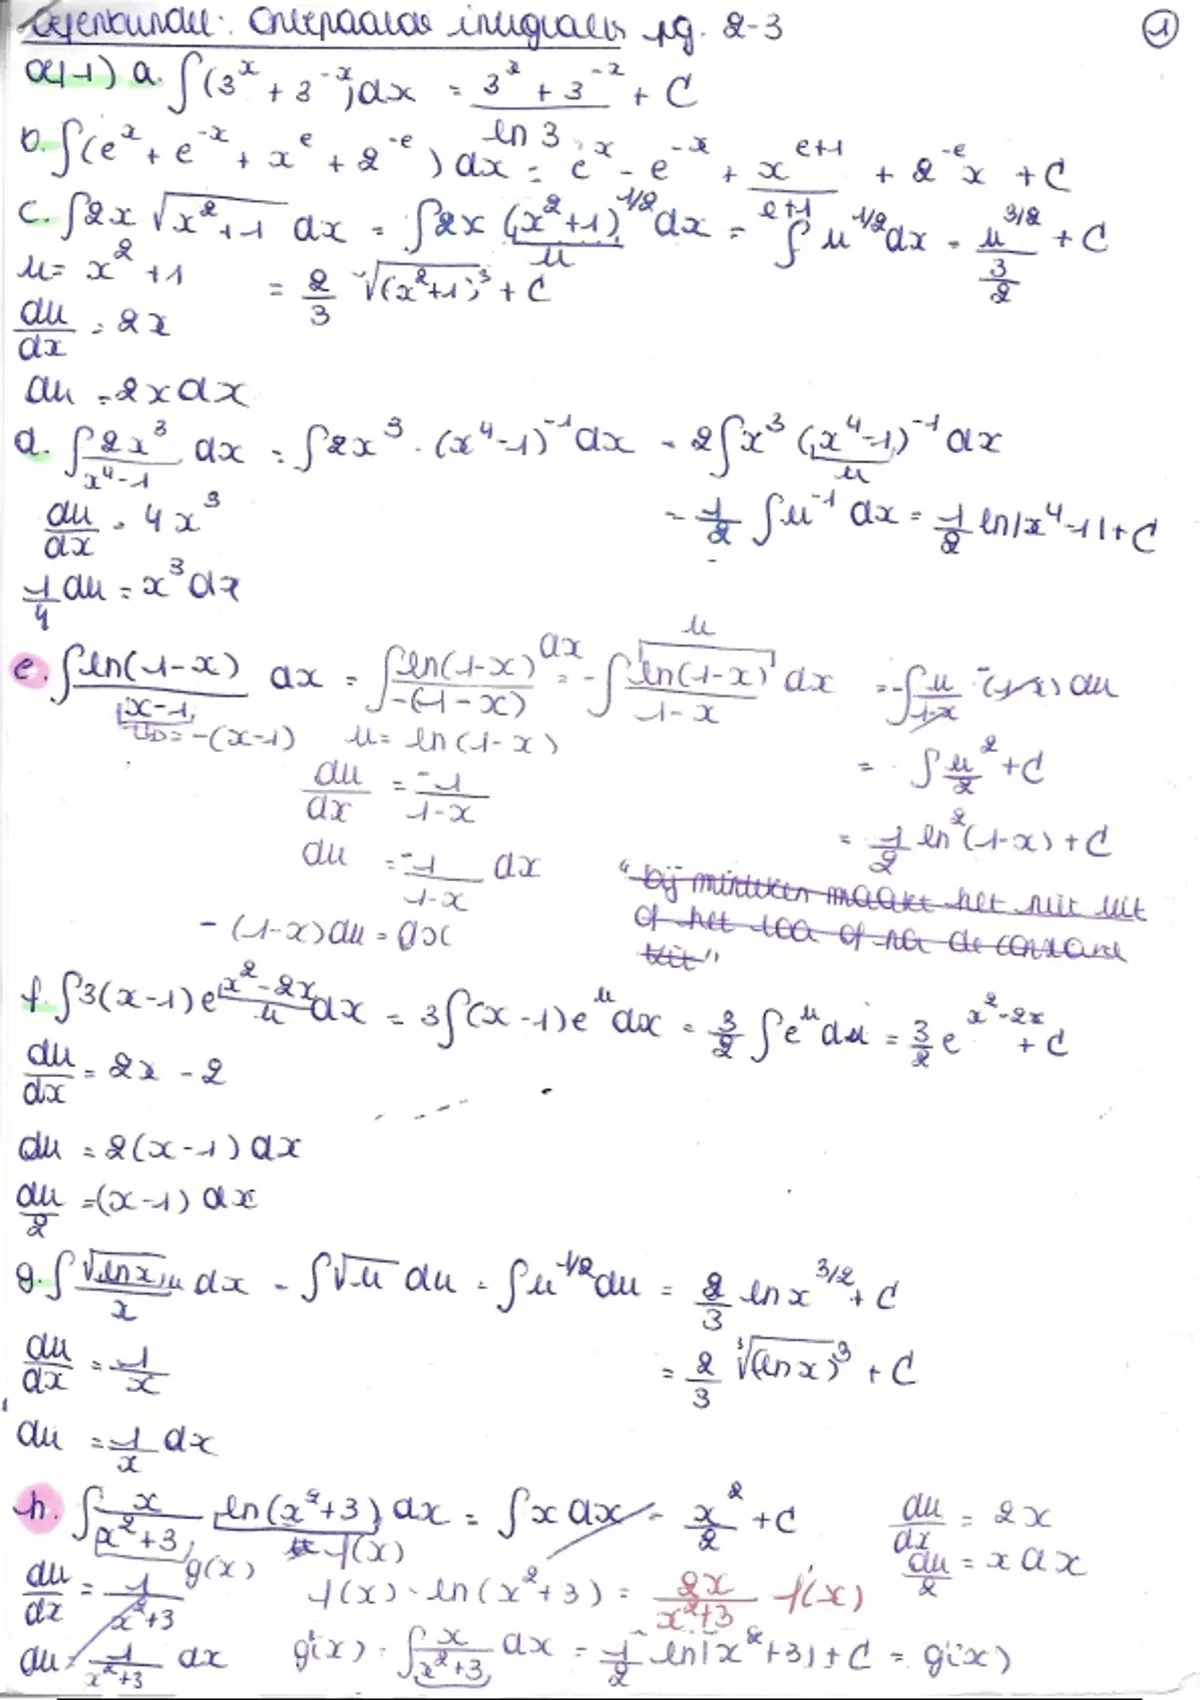 Oefenbundel: Onbepaalde integralen pg. 2-3 ①
a. ∫(3^x + 3^-x)dx = (3^x + 3^-x)/ln 3 + C
b. ∫(e^x + e^-x + x^e + 2^-e) dx = e^x - e^-x + x^(e+1)/(e+1) + 2^-e x + C
c. ∫2x √(x²+1) dx = ∫2x (x²+1)^1/2 dx = ∫ u^1/2 dx = u^3/2/(3/2) + C
u = x² + 1 = 2/3 √(x²+1)³ + C
du/dx = 2x
du = 2x dx
d. ∫ 2x³/(x⁴-1) dx = ∫2x³ · (x⁴-1)^-1 dx = 2∫x³ (x⁴-1)^-1 dx
u
du/dx = 4x³ = 1/2 ∫u^-1 dx = 1/2 ln|x⁴-1| + C
1/4 du = x³ dx
e. ∫ ln(1-x)/(x-1) dx = ∫ ln(1-x)/-(1-x) dx = -∫ ln(1-x)/(1-x) dx = -∫ u/(1-x) · -(1-x) du
= -(x-1) u = ln(1-x) = ∫ u²/2 + C
du/dx = -1/(1-x) = 1/2 ln²(1-x) + C
du = -1/(1-x) dx
"bij minteken maakt het niet uit
-(1-x)du = dx
of het voor of na de constante
f. ∫3(x-1)e^(x²-2x) dx = 3∫(x-1)e^u dx = 3/2 ∫e^u du = 3/2 e^(x²-2x) + C
du/dx = 2x - 2
du = 2(x-1) dx
du/2 = (x-1) dx
g. ∫ √(ln x)/x dx = ∫√u du = ∫u^1/2 du = 2/3 ln x^3/2 + C
du/dx = 1/x = 2/3 √(ln x)³ + C
du = 1/x dx
h. ∫ x/(x²+3) ln(x²+3) dx = ∫x dx = x²/2 + C du/dx = 2x
g(x) f(x) du/2 = x dx
du/dx = 1/(x²+3) f(x) = ln(x²+3) = 2x/(x²+3) f'(x)
du = 1/(x²+3) dx g(x) = ∫ x/(x²+3) dx = 1/2 ln|x²+3| + C = g(x)